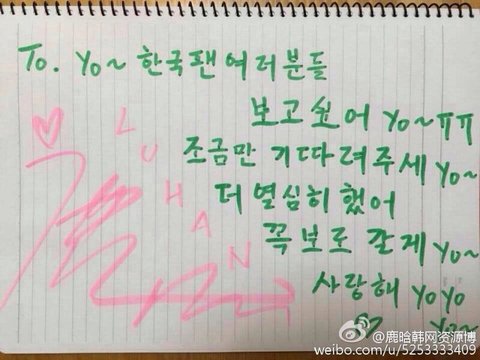 To. yo~ 한국팬여러분들
보고싶어 yo~ㅠㅠ
조금만 기따려주세 yo~
더 열심히 했어
꼭 보로 갈게 yo~
사랑해 yoyo
yo~
LUHAN
@鹿晗韩网资源博
weibo.com/u/5253333409